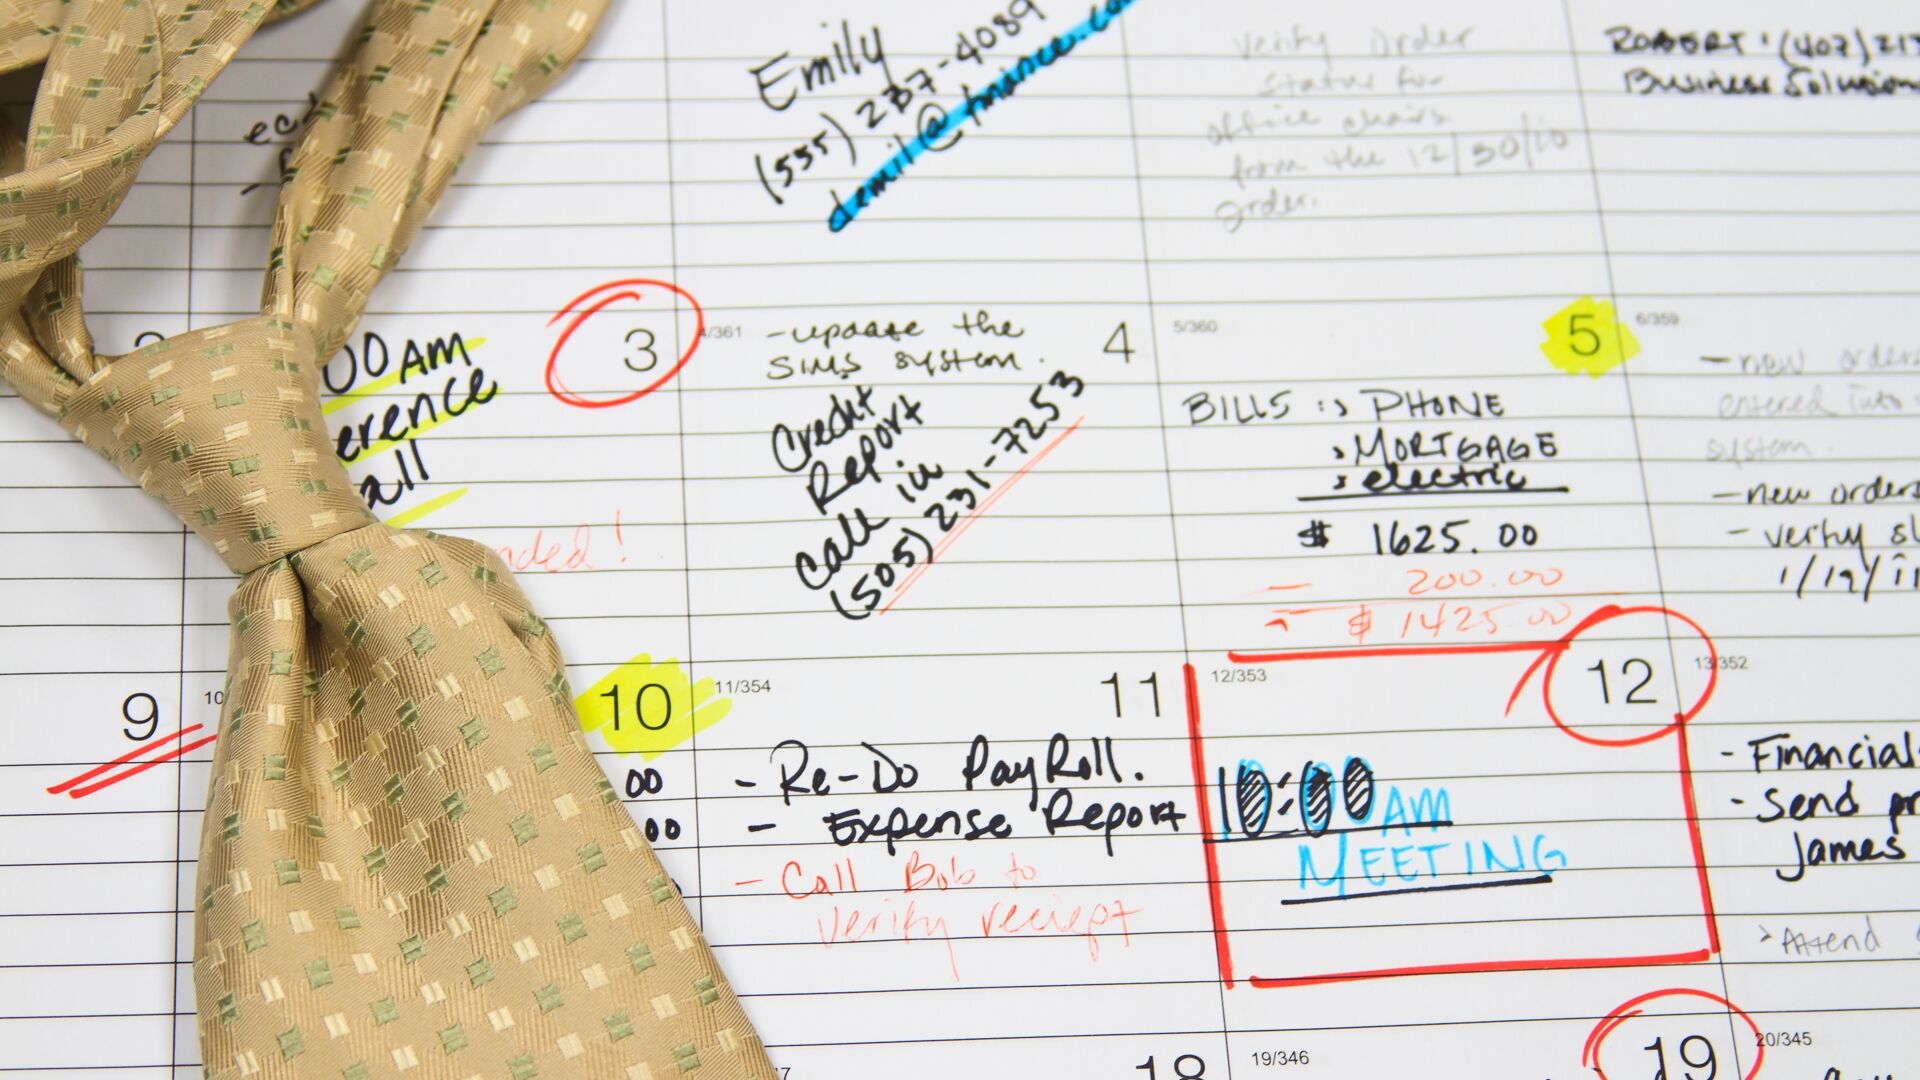 Emily
(555) 287-4089
demil@finance.co
Verify Order
Status for
office chairs
from the 12/30/10
order.
ROBERT (407)
Business Solution
00 AM
erence
all
nded!
3
4/361
4
-update the
SIMS system.
Credit
Report
Call in
(505) 231-7253
5/360
5
BILLS :> PHONE
> MORTGAGE
> electric
$ 1625.00
- 200.00
= $ 1425.00
6/359
-new orders
entered into
system.
-new orders
-verify
1/19/11
9
10
10
00
00
11/354
11
- Re-Do PayRoll.
- Expense Report
- Call Bob to
verify reciept
12/353
12
10:00 AM
MEETING
13/352
- Financial
- Send pr
James
> Attend
18
19/346
19
20/345